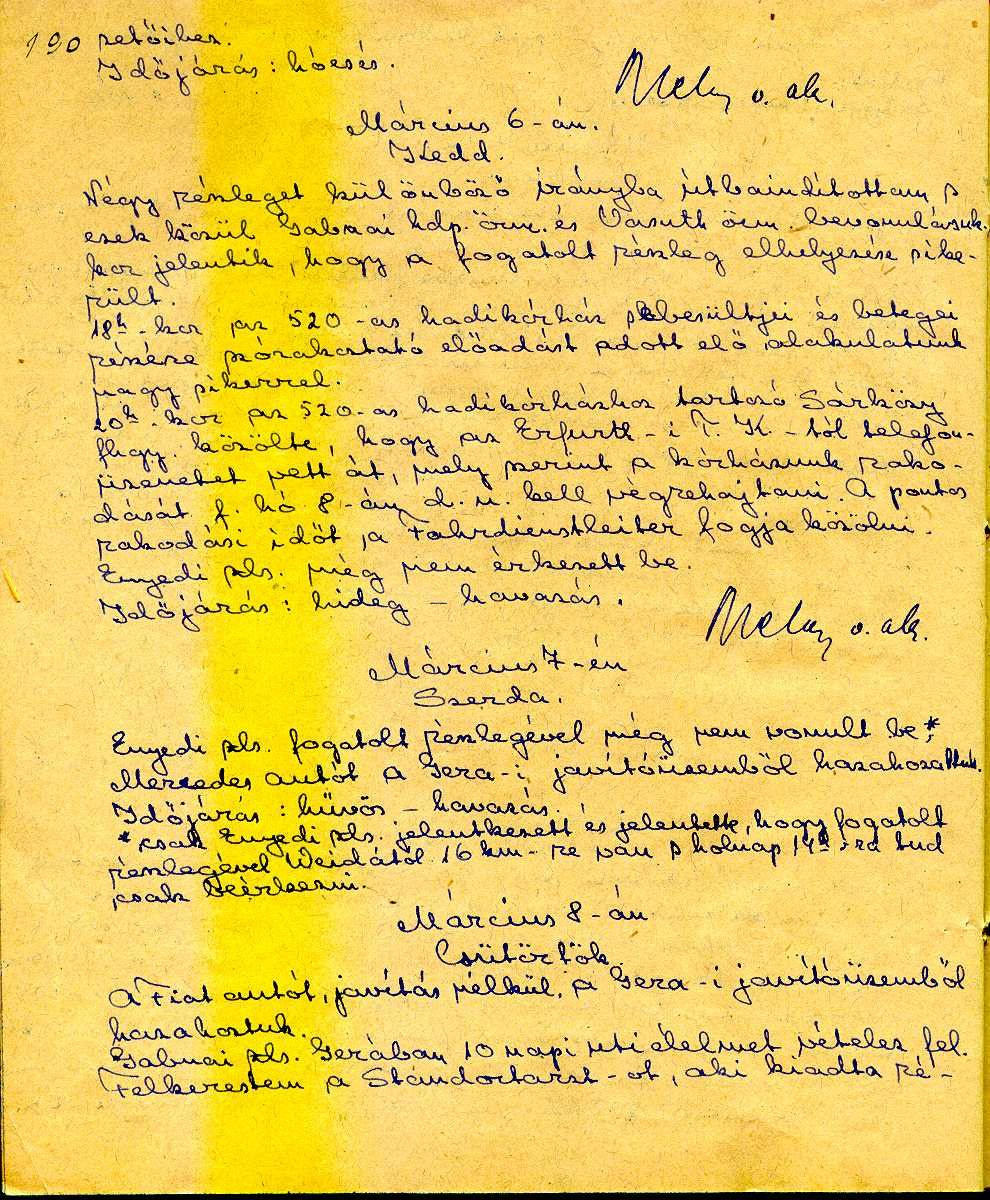 190 zetőihez.
Időjárás: hóesés.
v. alez.
Március 6-án.
Kedd.
Négy részleget különböző irányba útbaindítottam s
ezek közül Gabnai hdp. őrm. és Vasuth őrm. bevonulásuk-
kor jelentik, hogy a fogatolt részleg elhelyezése sike-
rült.
18h-kor az 520-as hadikórház sebesültjei és betegei
részére szórakoztató előadást adott elő alakulatunk
nagy sikerrel.
20h-kor az 520-as hadikórházhoz tartozó Sárközy
fhgy. közölte, hogy az Erfurth-i T. K.-tól telefon-
üzenetet vett át, mely szerint a kórházunk rako-
dását f. hó 8-án d. u. kell végrehajtani. A pontos
rakodási időt a Fahrdienstleiter fogja közölni.
Enyedi zls. még nem érkezett be.
Időjárás: hideg – havazás.
v. alez.
Március 7-én
Szerda.
Enyedi zls. fogatolt részlegével még nem vonult be,*
Mercedes autót a Gera-i javítóüzemből hazahozattuk.
Időjárás: hűvös – havazás.
* csak Enyedi zls. jelentkezett és jelentette, hogy fogatolt
részlegével Weidától 16 km-re van s holnap 14h-ra tud
csak beérkezni.
Március 8-án
Csütörtök.
A Fiat autót, javítás nélkül, a Gera-i javítóüzemből
hazahoztuk.
Gabnai zls. Gerában 10 napi uti élelmet vételez fel.
Felkerestem a Standortarzt-ot, aki kiadta ré-